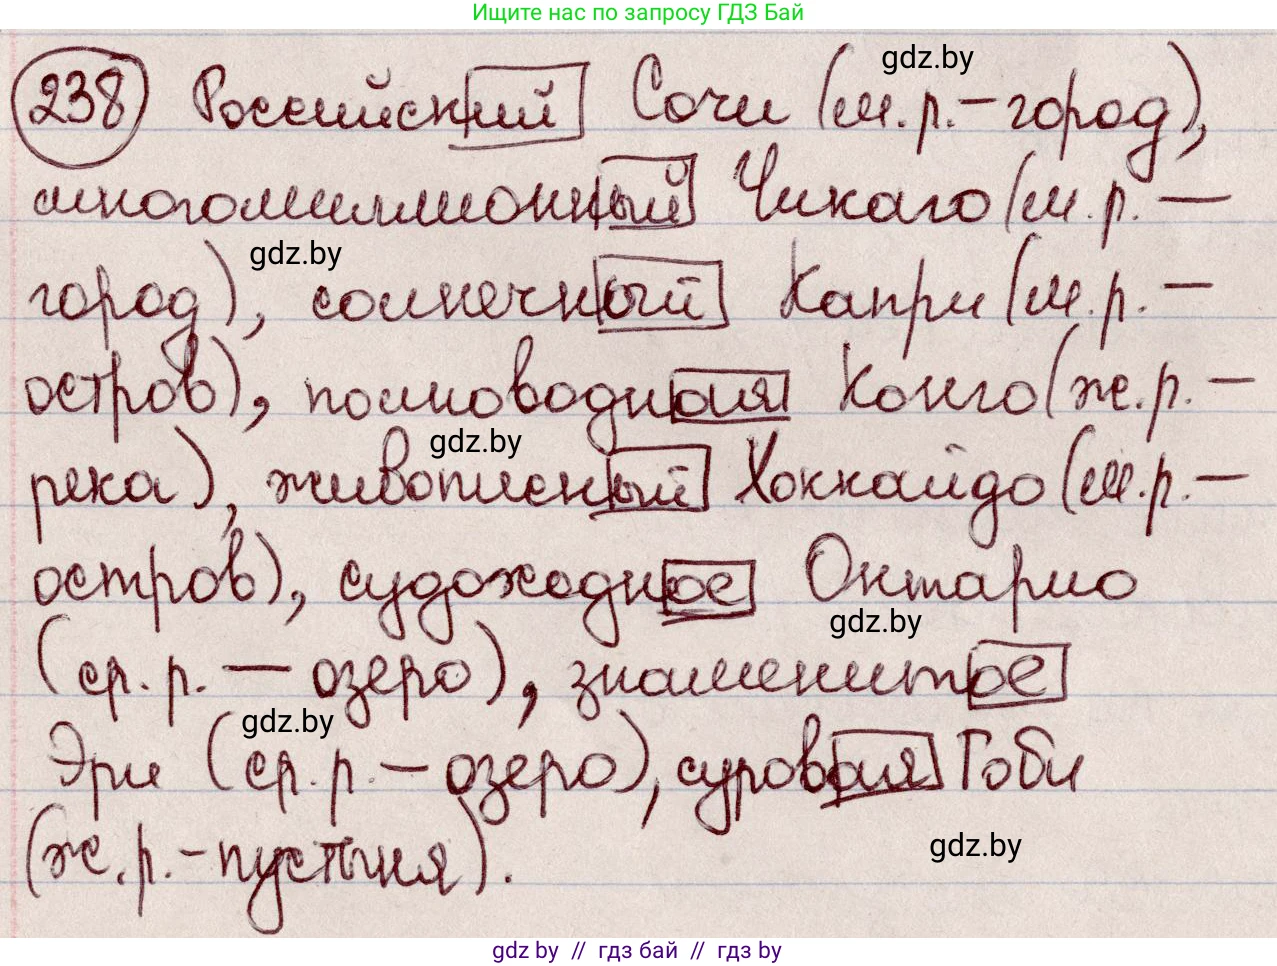 Ищите нас по запросу ГДЗ Бай
gdz.by
238 Российский Сочи (м.р.-город),
многомиллионный Чикаго (м.р. —
gdz.by
город), солнечный Капри (м.р. —
остров), полноводная Конго (ж.р. —
gdz.by
река), живописный Хоккайдо (м.р. —
остров), судоходное Онтарио
gdz.by
(ср.р. — озеро), знаменитое
gdz.by
Эри (ср.р. — озеро), суровая Гоби
gdz.by
(ж.р.-пустыня).
gdz by // гдз бай // gdz by